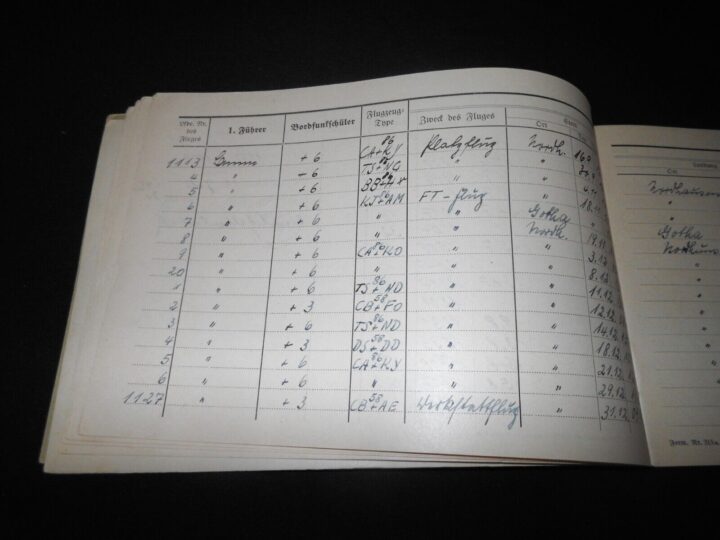 Lfde. Nr. des Fluges 1. Führer Bordfunkschüler Flugzeug-Type Zweck des Fluges Ort
1113 + 6 86 CA+KY Platzflug Nordh. 16.9
4 " + 6 TS+NG " "
5 " + 6 " "
6 " + 6 KJ+AM FT-Flug " 18.
7 " + 6 " " Gotha "
8 " + 6 " " Nordh. 19.11
9 " + 6 CA+KO " " 3.12
20 " + 6 " " " 8.12
1 " + 6 86 TS+ND " " 11.12.
2 " + 3 58 CB+FO " " 12.12.
3 " + 6 86 TS+ND " " 14.12.
4 " + 3 58 DS+DD " " 18.12.
5 " + 6 86 CA+KY " " 21.12.
6 " + 6 " " " 29.12.
1127 " + 3 58 CB+AE Werkstattflug " 31.12.
Nordhausen
"
Gotha
Nordhaus
Form. Nr.